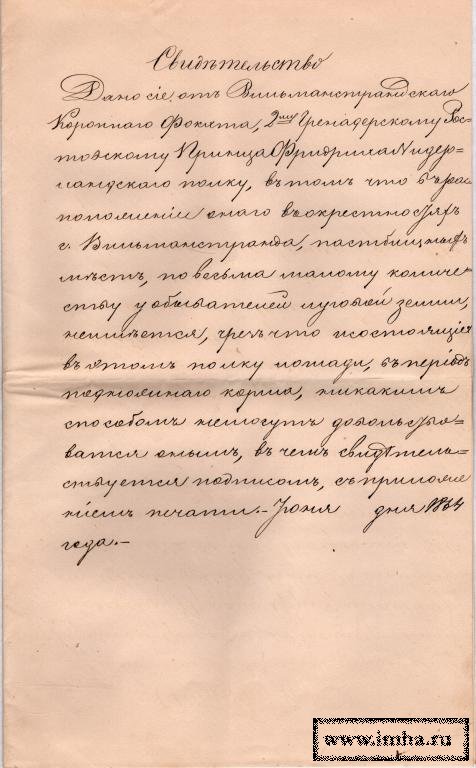 Свидѣтельство
Дано сіе, отъ Вильманстрандскаго
Короннаго Фохта, 2му Гренадерскому Рос-
товскому Принца Фридриха Нидер=
ландскаго полку, въ томъ что въ рас
положеніи онаго въ окрестностяхъ
г. Вильманстранда, пастбищныхъ
мѣстъ, по весьма малому количе
ству у обывателей луговой земли,
неимѣется, чрезъ что и состоящіе
въ этомъ полку лошади, въ періодъ
подножнаго корма, никакимъ
способомъ немогутъ довольство=
ватся онымъ, въ чемъ свидѣтель=
ствуется подписомъ, съ приложе
ніемъ печати.- Іюня дня 1864
года.-
www.imha.ru